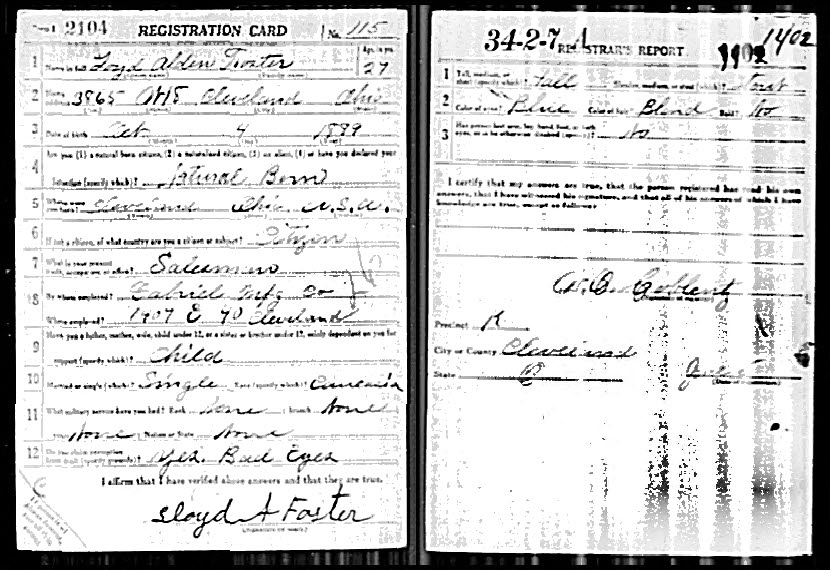 2104 REGISTRATION CARD No. 115
1 Name in full Loyd Alden Froster Age, in yrs. 27
2 Home address 3865 W 18 Cleveland Ohio
3 Date of birth Oct 4 1889
4 Are you (1) a natural born citizen, (2) a naturalized citizen, (3) an alien, (4) or have you declared your
intention (specify which)? Natural Born
5 Where were you born? Cleveland Ohio U.S.A.
6 If not a citizen, of what country are you a citizen or subject? Citizen
7 What is your present trade, occupation, or office? Salesman
8 By whom employed? Gabriel Mfg. Co
Where employed? 1407 E 40 Cleveland
9 Have you a father, mother, wife, child under 12, or a sister or brother under 12, solely dependent on you for
support (specify which)? Child
10 Married or single (which)? Single Race (specify which)? Caucasian
11 What military service have you had? Rank None branch None
years None Nation or State None
12 Do you claim exemption from draft (specify grounds)? Yes. Bad Eyes
I affirm that I have verified above answers and that they are true.
Lloyd A Foster
34-2-7 A REGISTRAR'S REPORT 1402 1402
1 Tall, medium, or short (specify which)? Tall Slender, medium, or stout (which)? Stout
2 Color of eyes? Blue Color of hair? Blond Bald? No
3 Has person lost arm, leg, hand, foot, or both eyes, or is he otherwise disabled (specify)? No
I certify that my answers are true, that the person registered has read his own
answers, that I have witnessed his signature, and that all of his answers of which I have
knowledge are true, except as follows:
Precinct K
City or County Cleveland
State O